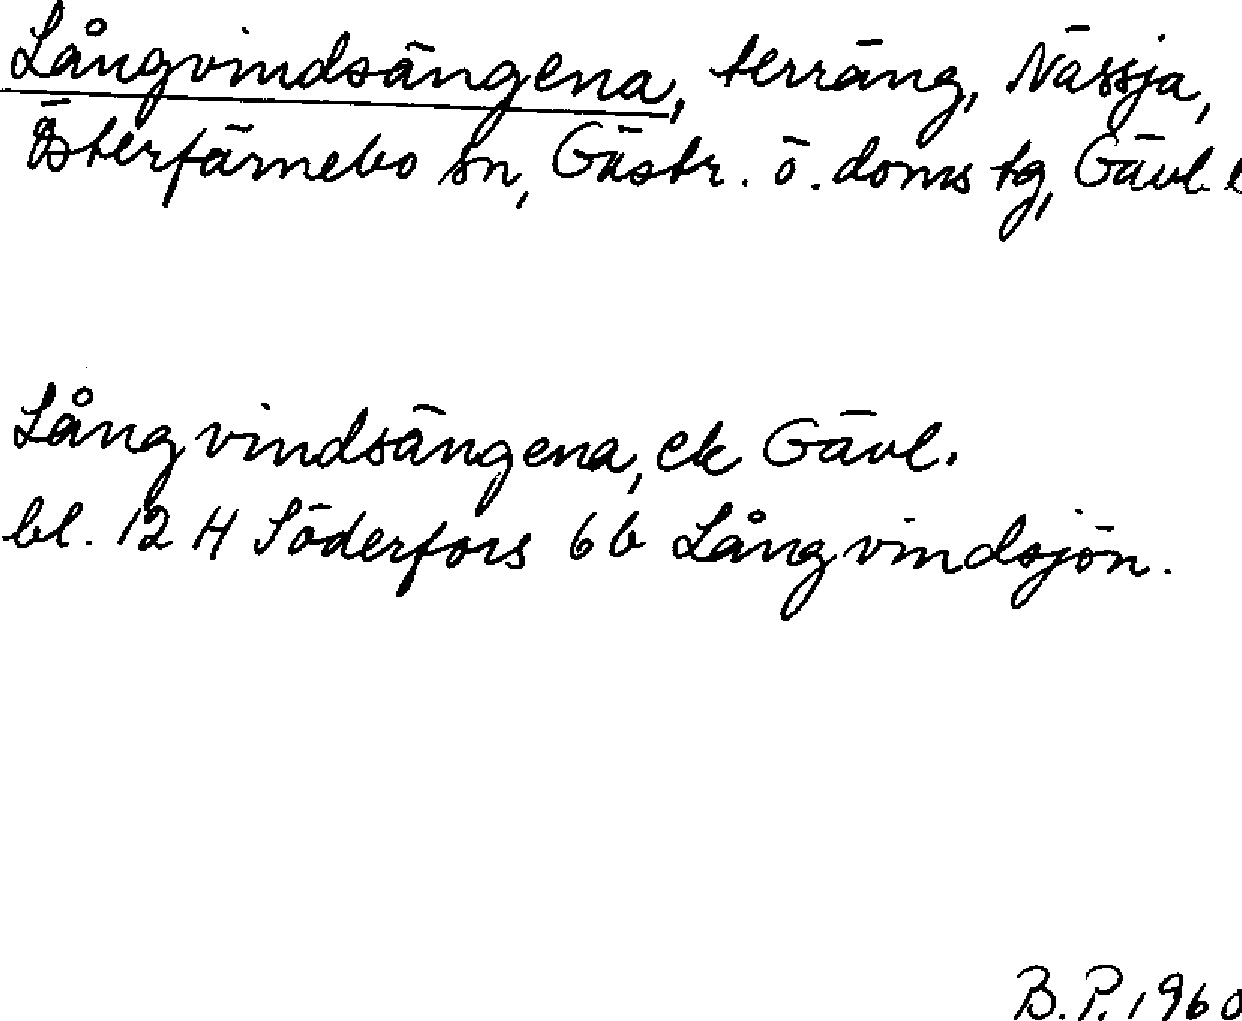 Långvindsängena, terräng, Nässja,
Österfärnebo sn, Gästr. ö. doms tg, Gävl. l
Långvindsängena, ek Gävl.
bl. 12 H Söderfors 6 b Långvindsjön.
B.P. 1960